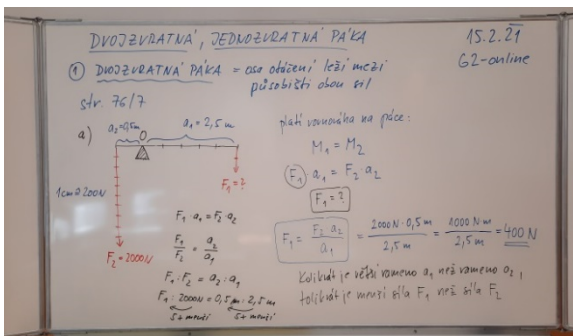 DVOJZVRATNÁ, JEDNOZVRATNÁ PÁKA
15.2.21
G2-online
① DVOJZVRATNÁ PÁKA = osa otáčení leží mezi
působišti obou sil
str. 76/7
a)
a₂=0,5m
O
a₁ = 2,5 m
F₁ = ?
1cm ≙ 200N
F₂ = 2000N
F₁ · a₁ = F₂ · a₂
F₁/F₂ = a₂/a₁
F₁ : F₂ = a₂ : a₁
F₁ : 2000N = 0,5m : 2,5m
5× menší 5× menší
platí rovnováha na páce:
M₁ = M₂
F₁ · a₁ = F₂ · a₂
F₁ = ?
F₁ = F₂ · a₂ / a₁ = 2000N · 0,5m / 2,5 m = 1000 N·m / 2,5 m = 400 N
Kolikrát je větší rameno a₁ než rameno a₂,
tolikrát je menší síla F₁ než síla F₂